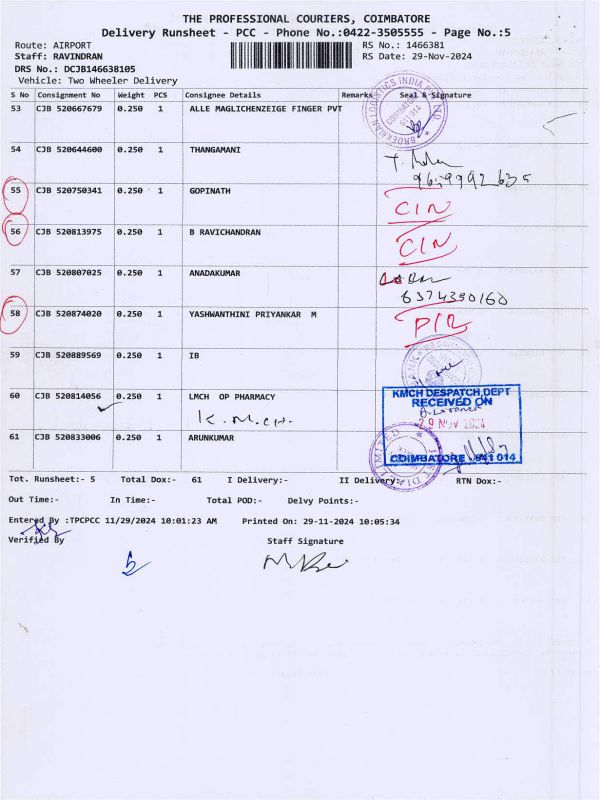 THE PROFESSIONAL COURIERS, COIMBATORE
Delivery Runsheet - PCC - Phone No.:0422-3505555 - Page No.:5
Route: AIRPORT RS No.: 1466381
Staff: RAVINDRAN RS Date: 29-Nov-2024
DRS No.: DCJB146638105
Vehicle: Two Wheeler Delivery
S No Consignment No Weight PCS Consignee Details Remarks Seal & Signature
53 CJB 520667679 0.250 1 ALLE MAGLICHENZEIGE FINGER PVT
BROEKMAN LOGISTICS INDIA PVT LTD
COIMBATORE 641 014
54 CJB 520644600 0.250 1 THANGAMANI
9659992635
55 CJB 520750341 0.250 1 GOPINATH
CIN
56 CJB 520813975 0.250 1 B RAVICHANDRAN
CIN
57 CJB 520807025 0.250 1 ANADAKUMAR
6374390160
58 CJB 520874020 0.250 1 YASHWANTHINI PRIYANKAR M
PIR
59 CJB 520889569 0.250 1 IB
60 CJB 520814056 0.250 1 LMCH OP PHARMACY
K.M.CH.
KMCH DESPATCH DEPT
RECEIVED ON
29 NOV 2024
COIMBATORE - 641 014
61 CJB 520833006 0.250 1 ARUNKUMAR
JUST DIAL LIMITED
Tot. Runsheet:- 5 Total Dox:- 61 I Delivery:- II Delivery:- RTN Dox:-
Out Time:- In Time:- Total POD:- Delvy Points:-
Entered By :TPCPCC 11/29/2024 10:01:23 AM Printed On: 29-11-2024 10:05:34
Verified By Staff Signature